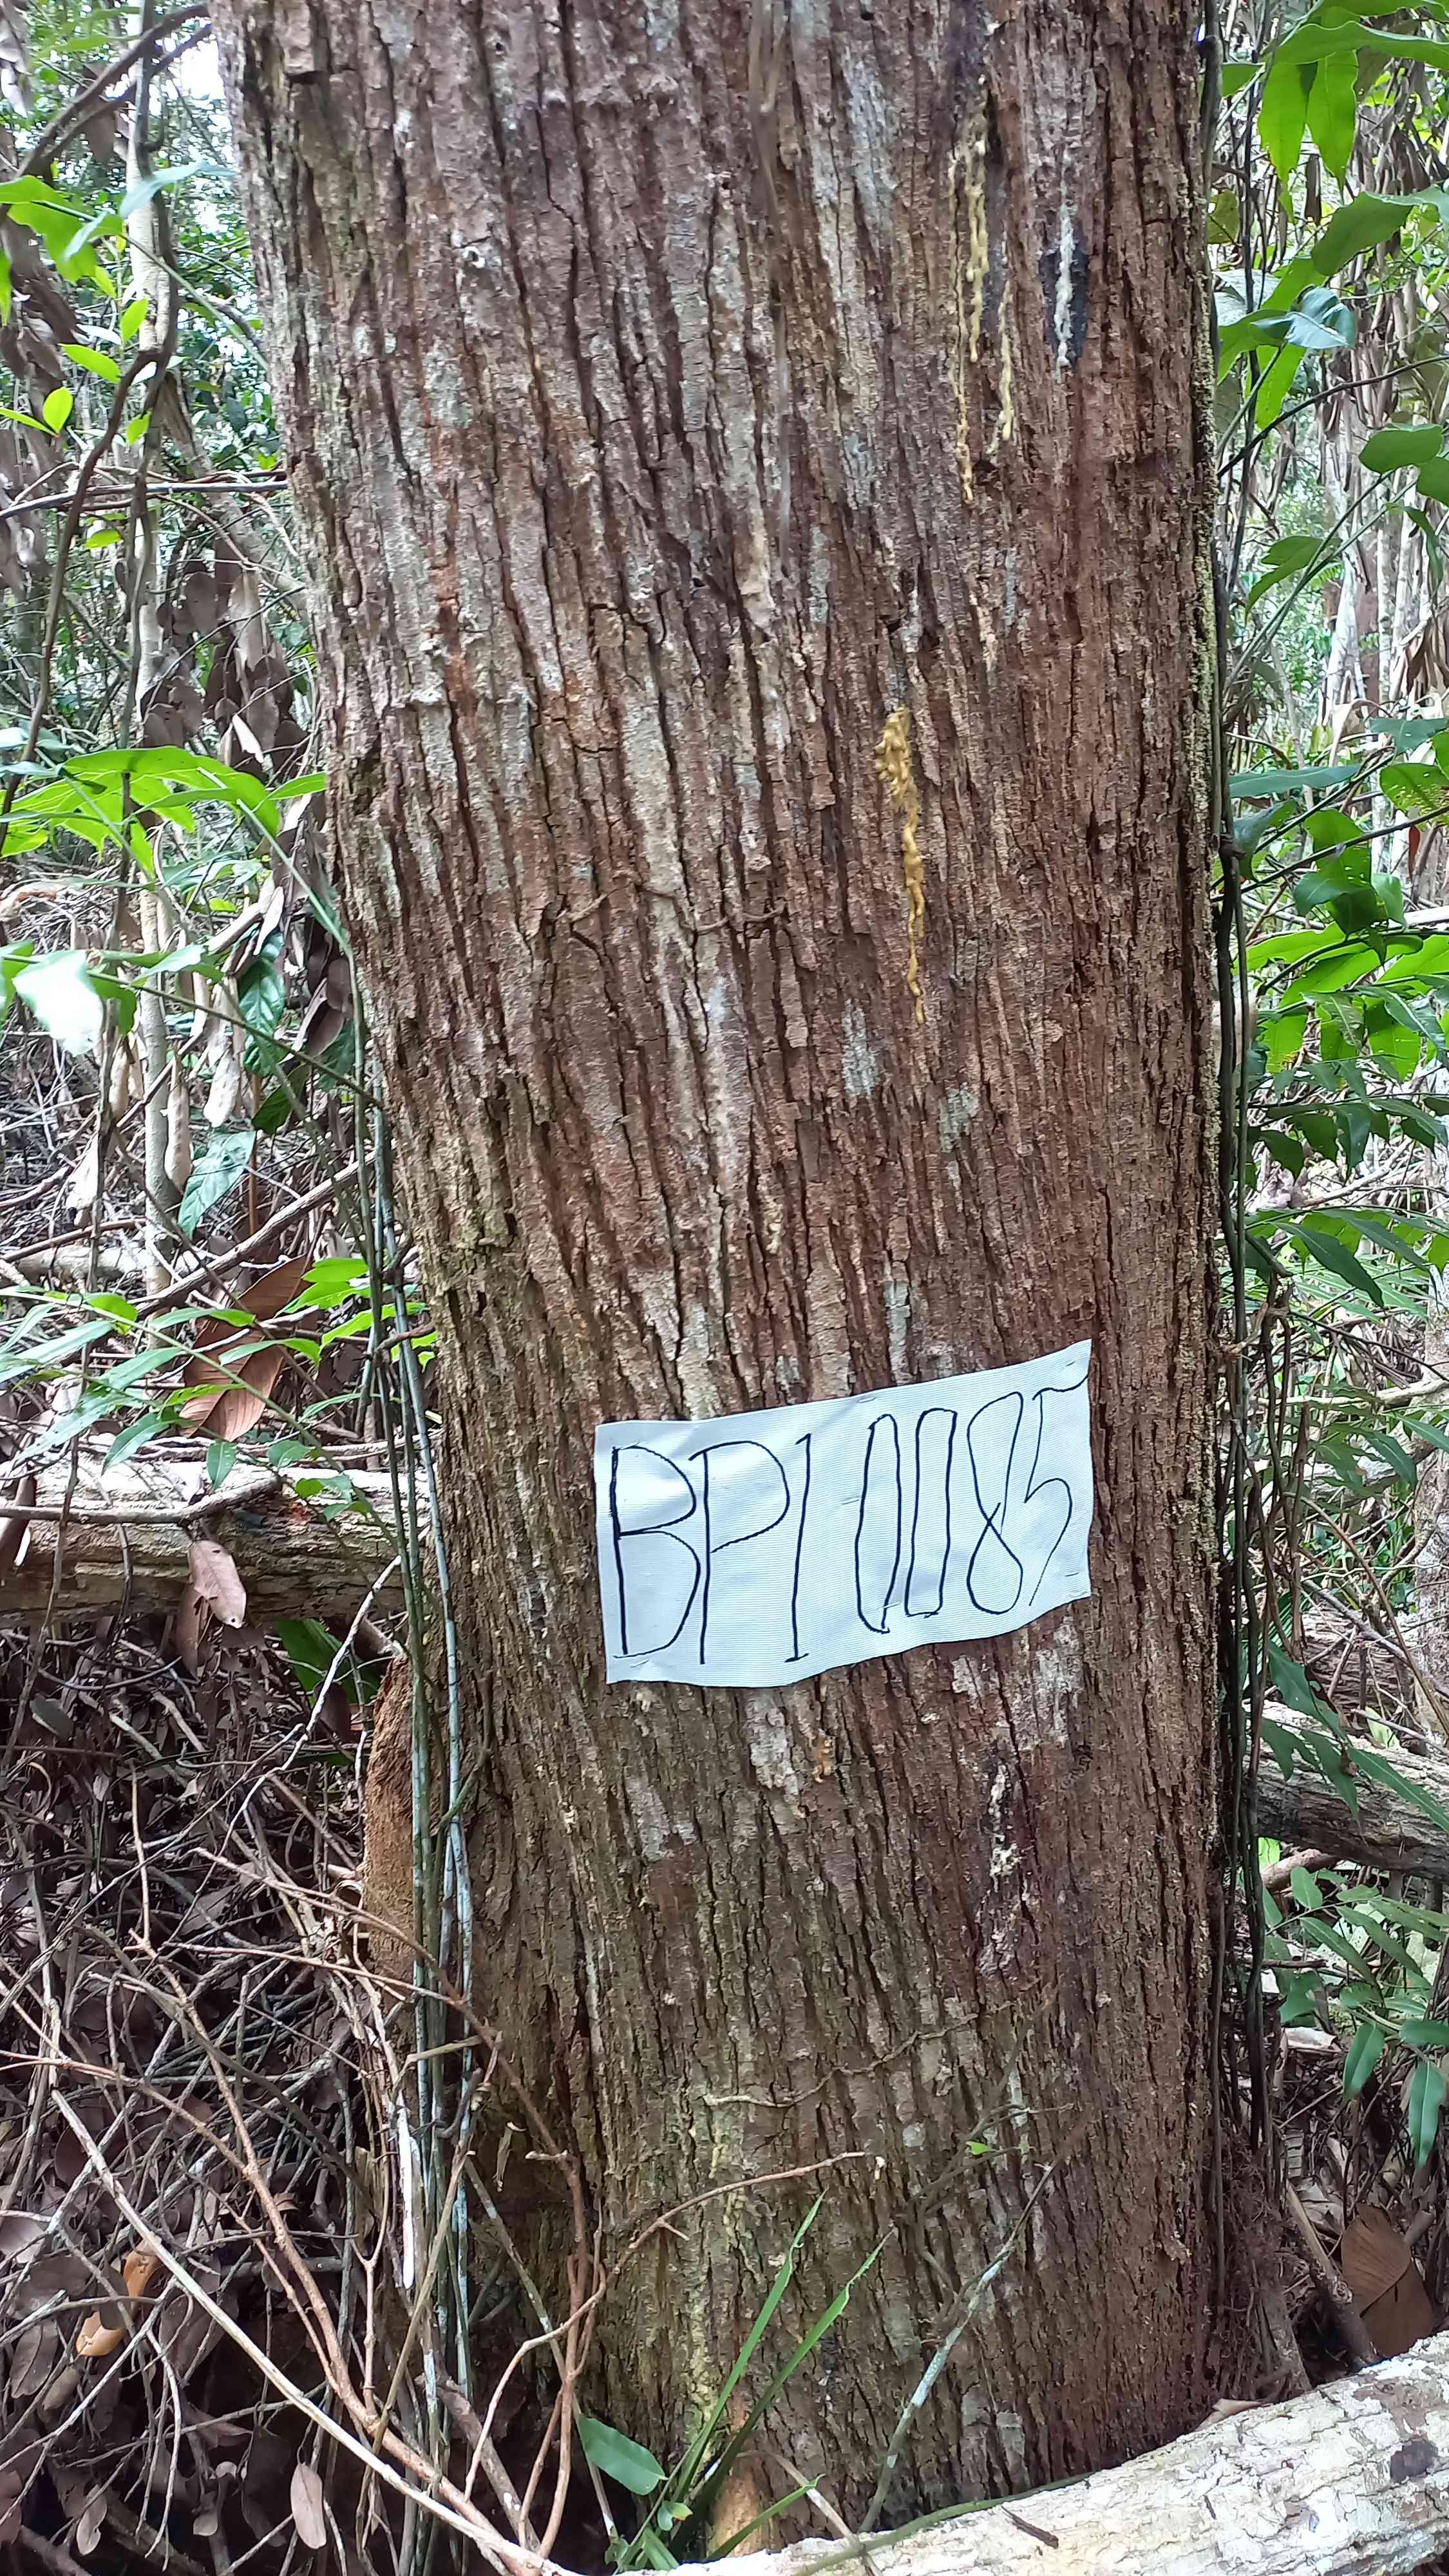 BP1 0085